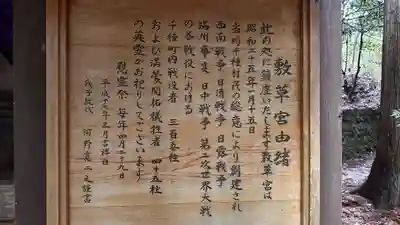 敷草宮由緒
此の処に鎮座いたします敷草宮は
昭和二十五年十月十五日
当時千種村民の総意により創建され
西南戦争 日清戦争 日露戦争
満州事変 日中戦争 第二次世界大戦
の各戦役における
千種町内戦役者 三百五柱
および満蒙開拓犠牲者 四十五柱
の英霊がお祀りしてございます
慰霊祭 毎年四月二十九日
平成十七年三月吉祥日
氏子総代 河野 二 謹書